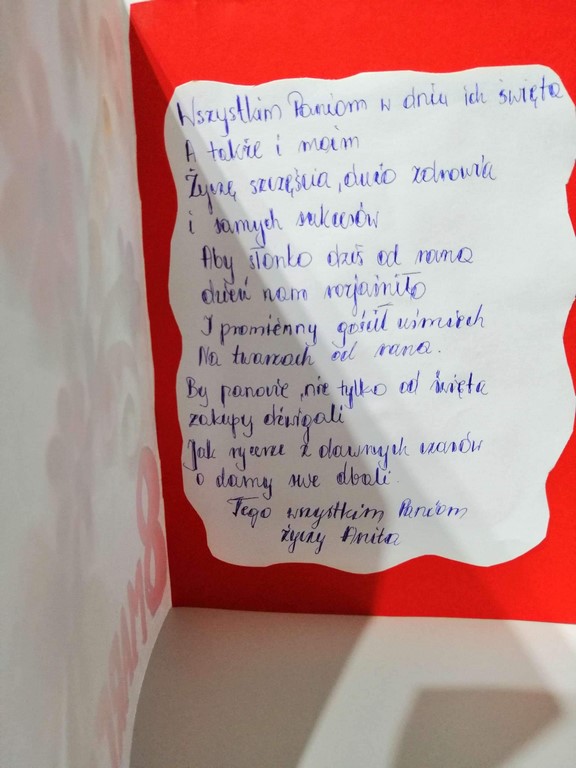 Wszystkim Paniom w dniu ich święta
A także i moim
Życzę szczęścia, dużo zdrowia
i samych sukcesów
Aby słonko dziś od rana
dzień nam rozjaśniło
I promienny gościł uśmiech
Na twarzach od rana.
By panowie, nie tylko od święta
zakupy dźwigali
Jak rycerze z dawnych czasów
o damy swe dbali.
Tego wszystkim Paniom
życzy Anita
8 Marca